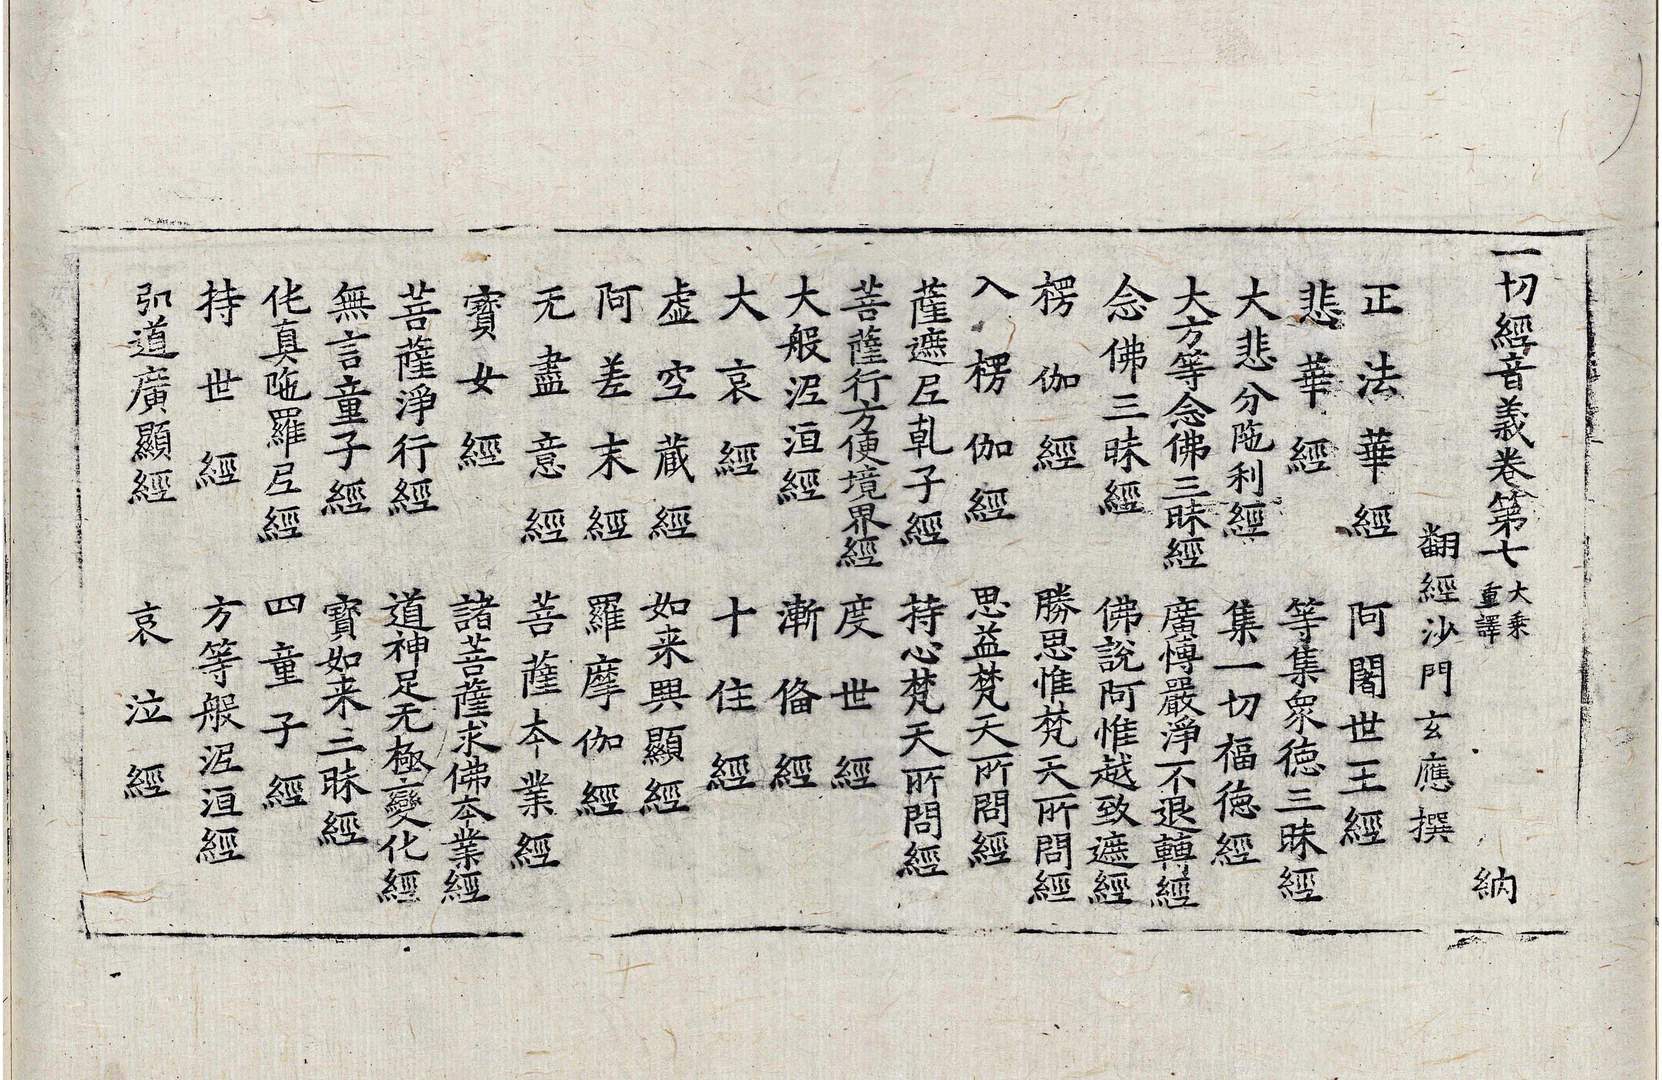 一切經音義卷第七 大乘重譯 納
翻經沙門玄應撰
正法華經 阿闍世王經
悲華經 等集衆德三昧經
大悲分陁利經 集一切福德經
大方等念佛三昧經 廣愽嚴淨不退轉經
念佛三昧經 佛說阿惟越致遮經
楞伽經 勝思惟梵天所問經
入楞伽經 思益梵天所問經
薩遮尼乹子經 持心梵天所問經
菩薩行方便境界經 度世經
大般泥洹經 漸俻經
大哀經 十住經
虛空藏經 如来興顯經
阿差末經 羅摩伽經
无盡意經 菩薩本業經
寶女經 諸菩薩求佛本業經
菩薩淨行經 道神足无極變化經
無言童子經 寶如来三昧經
仛真陁羅尼經 四童子經
持世經 方等般泥洹經
弘道廣顯經 哀泣經